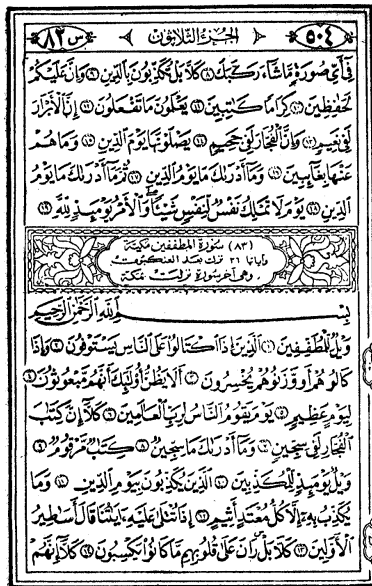 س ٨٢ الجزء الثلاثون ٥٠٤
فِي أَيِّ صُورَةٍ مَّا شَاءَ رَكَّبَكَ ٨ كَلَّا بَلْ تُكَذِّبُونَ بِالدِّينِ ٩ وَإِنَّ عَلَيْكُمْ
لَحَافِظِينَ ١٠ كِرَامًا كَاتِبِينَ ١١ يَعْلَمُونَ مَا تَفْعَلُونَ ١٢ إِنَّ الْأَبْرَارَ
لَفِي نَعِيمٍ ١٣ وَإِنَّ الْفُجَّارَ لَفِي جَحِيمٍ ١٤ يَصْلَوْنَهَا يَوْمَ الدِّينِ ١٥ وَمَا هُمْ
عَنْهَا بِغَائِبِينَ ١٦ وَمَا أَدْرَاكَ مَا يَوْمُ الدِّينِ ١٧ ثُمَّ مَا أَدْرَاكَ مَا يَوْمُ
الدِّينِ ١٨ يَوْمَ لَا تَمْلِكُ نَفْسٌ لِّنَفْسٍ شَيْئًا وَالْأَمْرُ يَوْمَئِذٍ لِلَّهِ ١٩
(٨٣) سورة المطففين مكية
وآياتها ٣٦ نزلت بعد العنكبوت
وهى آخر سورة نزلت بمكة
بِسْمِ اللَّهِ الرَّحْمَنِ الرَّحِيمِ
وَيْلٌ لِّلْمُطَفِّفِينَ ١ الَّذِينَ إِذَا اكْتَالُوا عَلَى النَّاسِ يَسْتَوْفُونَ ٢ وَإِذَا
كَالُوهُمْ أَو وَّزَنُوهُمْ يُخْسِرُونَ ٣ أَلَا يَظُنُّ أُولَئِكَ أَنَّهُم مَّبْعُوثُونَ ٤
لِيَوْمٍ عَظِيمٍ ٥ يَوْمَ يَقُومُ النَّاسُ لِرَبِّ الْعَالَمِينَ ٦ كَلَّا إِنَّ كِتَابَ
الْفُجَّارِ لَفِي سِجِّينٍ ٧ وَمَا أَدْرَاكَ مَا سِجِّينٌ ٨ كِتَابٌ مَّرْقُومٌ ٩
وَيْلٌ يَوْمَئِذٍ لِّلْمُكَذِّبِينَ ١٠ الَّذِينَ يُكَذِّبُونَ بِيَوْمِ الدِّينِ ١١ وَمَا
يُكَذِّبُ بِهِ إِلَّا كُلُّ مُعْتَدٍ أَثِيمٍ ١٢ إِذَا تُتْلَى عَلَيْهِ آيَاتُنَا قَالَ أَسَاطِيرُ
الْأَوَّلِينَ ١٣ كَلَّا بَلْ رَانَ عَلَى قُلُوبِهِم مَّا كَانُوا يَكْسِبُونَ ١٤ كَلَّا إِنَّهُمْ